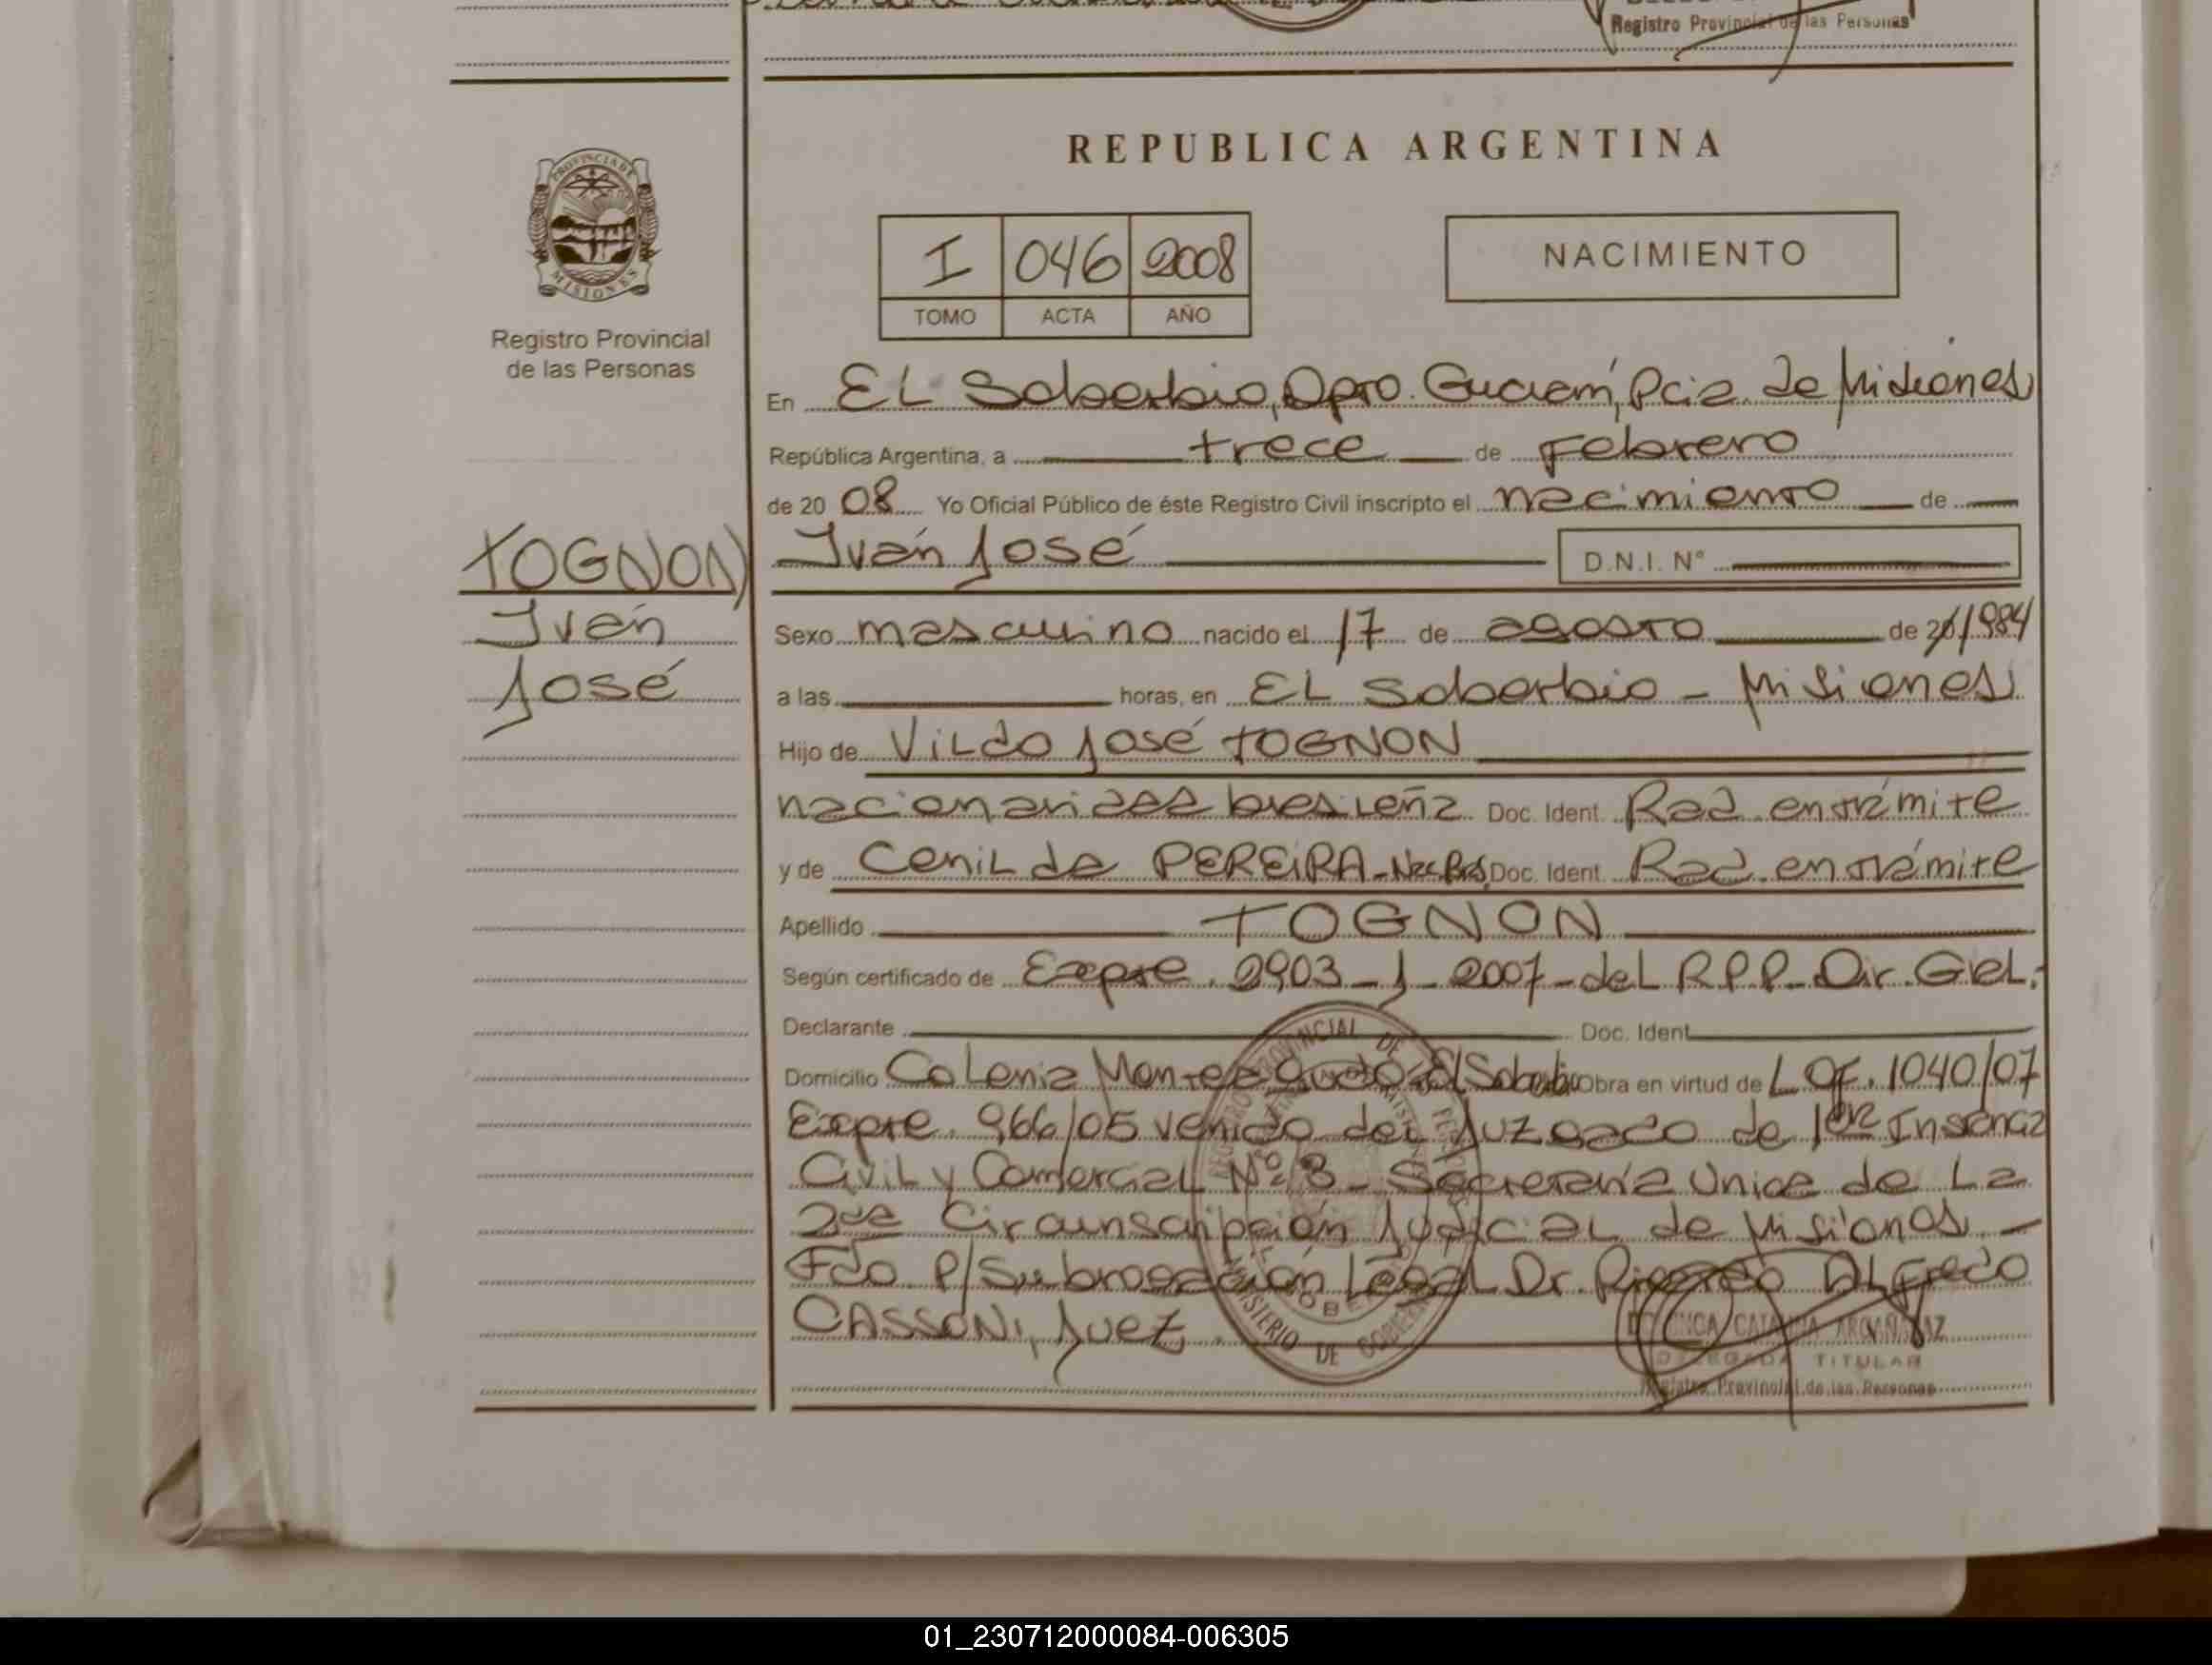 Registro Provincial de las Personas
REPUBLICA ARGENTINA
PROVINCIA DE
MISIONES
Registro Provincial
de las Personas
I 046 2008
TOMO ACTA AÑO
NACIMIENTO
En EL Soberbio, Dpto. Guaraní, Pcia. de Misiones
República Argentina, a trece de Febrero
de 20 08 Yo Oficial Público de éste Registro Civil inscripto el nacimiento de
TOGNON
Iván José D.N.I. Nº
Iván
Sexo masculino nacido el 17 de agosto de 1984
José
a las horas, en EL Soberbio - Misiones
Hijo de Vildo José TOGNON
nacionalidad brasileña Doc. Ident. Rad. en trámite
y de Cenilda PEREIRA - Nac. Bras. Doc. Ident. Rad. en trámite
Apellido TOGNON
Según certificado de Expte. 2903 - J - 2007 - del R.P.P. Dir. Gral.
Declarante Doc. Ident.
Domicilio Colonia Monteagudo El Soberbio Obra en virtud de L. Of. 1040/07
Expte. 966/05 venido del Juzgado de 1era Instancia
Civil y Comercial Nº 3 - Secretaría Unica de La
2da Circunscripción Judicial de Misiones. -
Fdo. P/Subrogación Legal Dr. Ricardo ALfredo
CASSONI, Juez.
DELEGADA TITULAR
Registro Provincial de las Personas
01_230712000084-006305